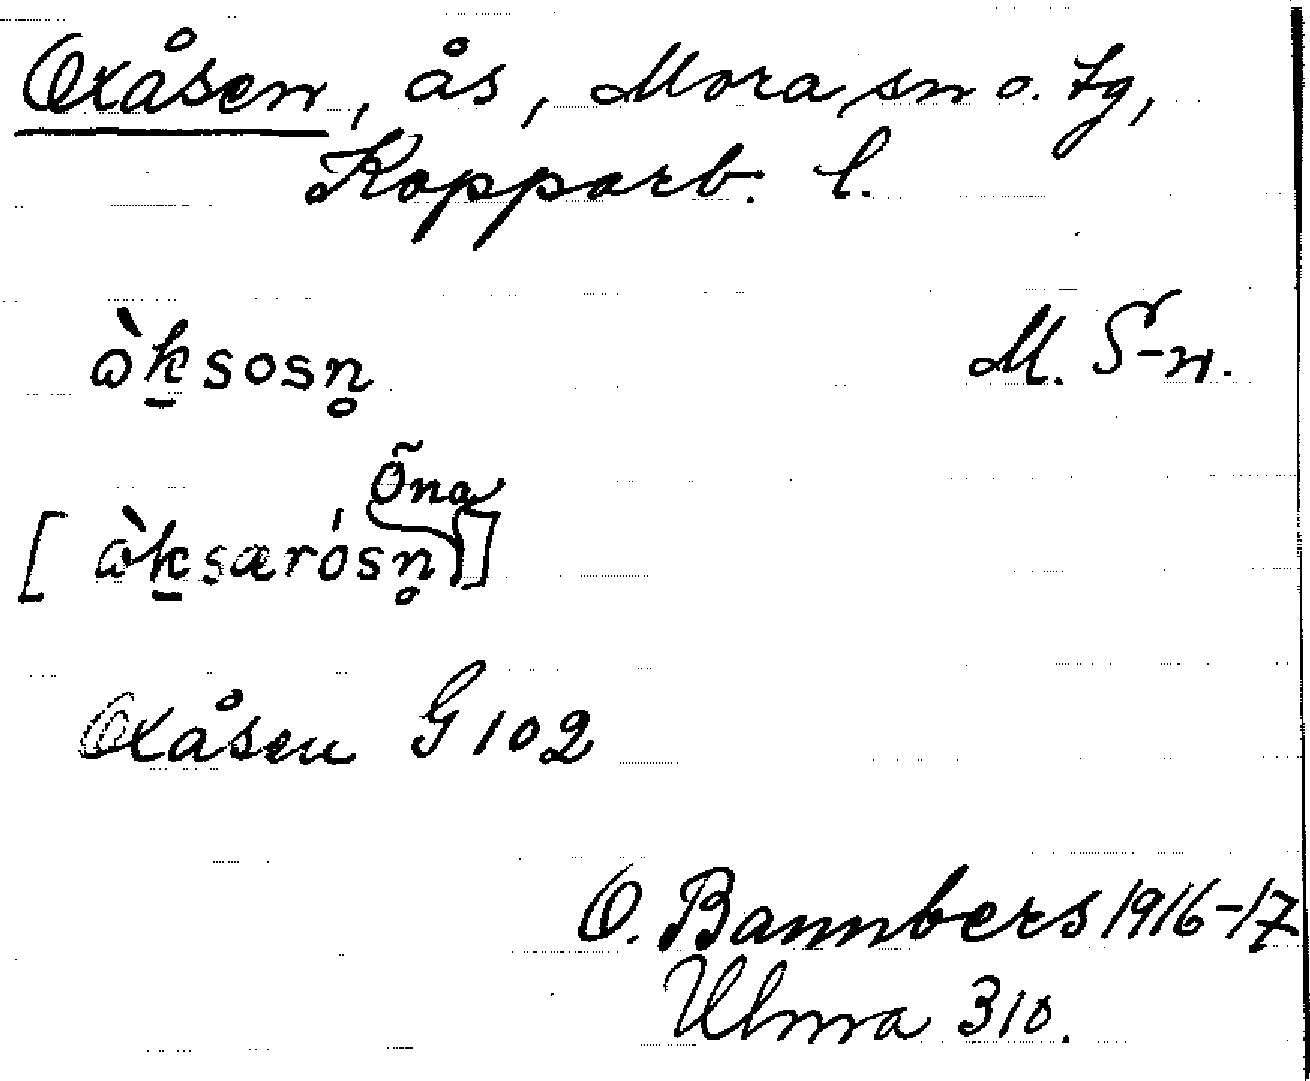 Oxåsen, ås, Mora sn o. tg,
Kopparb. l.
ὼk̠sosn̥ M. S-n.
Õna
[ὼk̠særósn̥]
Oxåsen G 102
O. Bannbers 1916-17
Ulma 310.